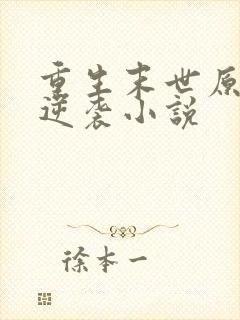 重生末世原
逆袭小説
徐本一